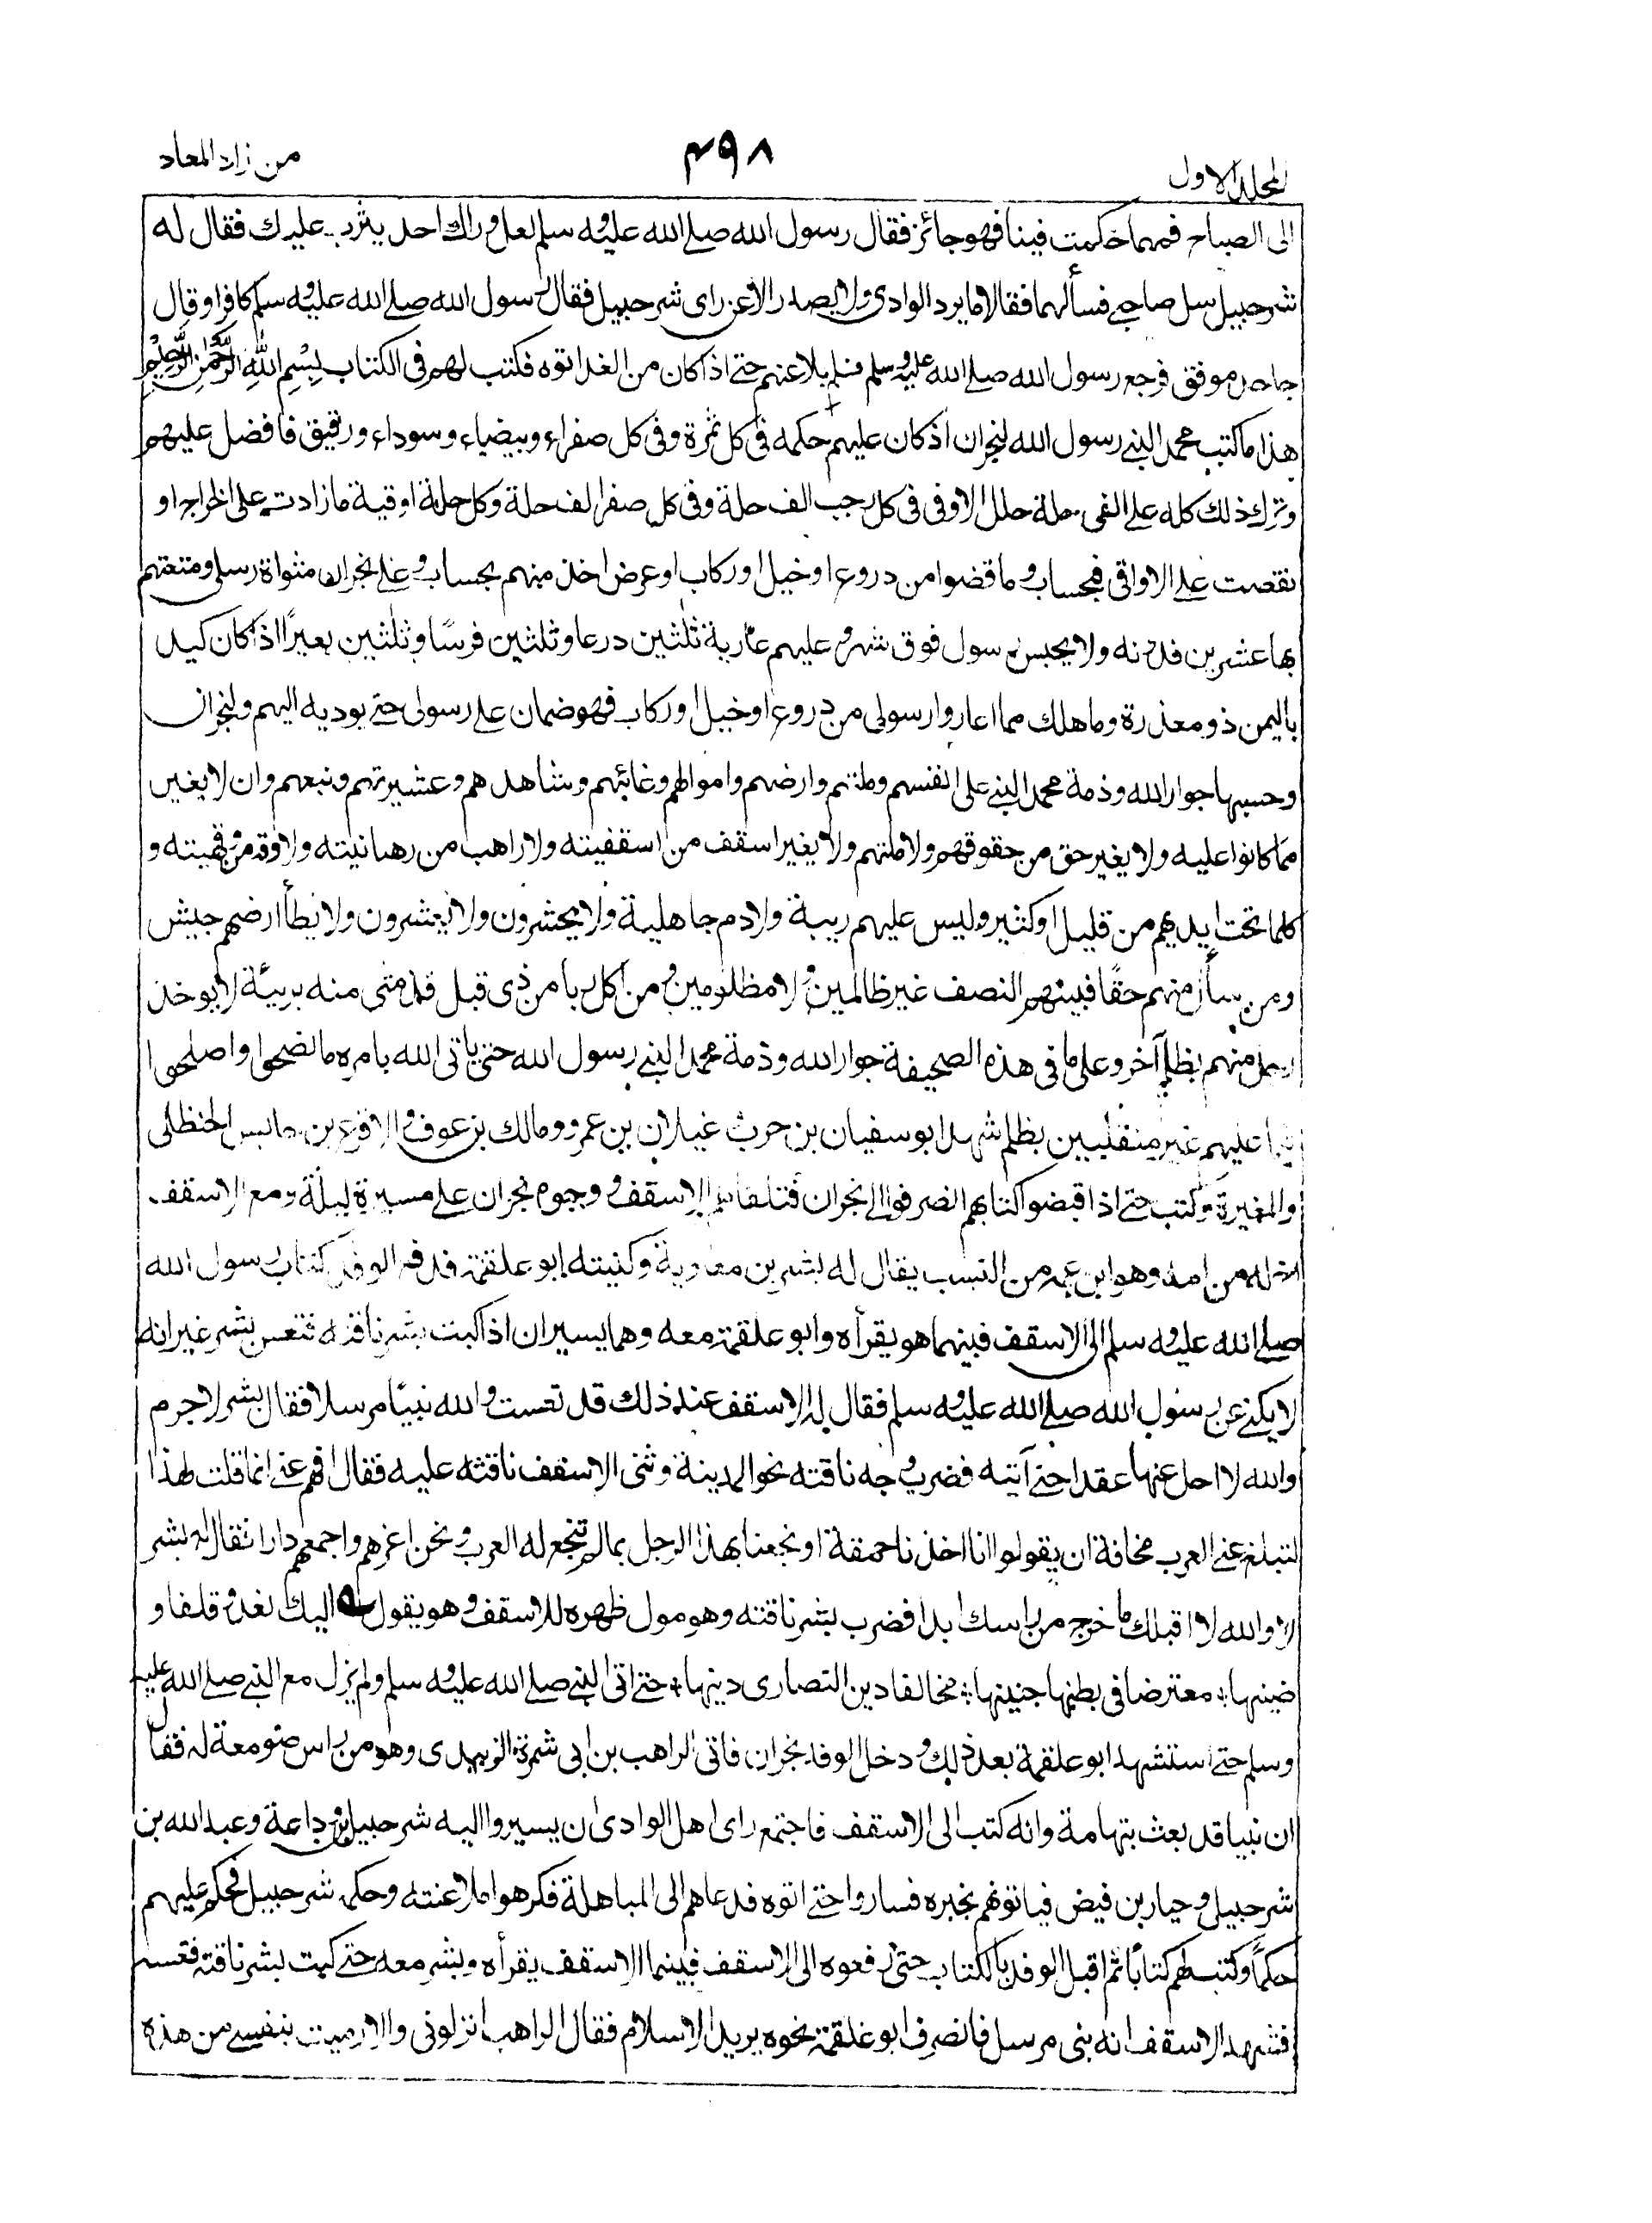 المجلد الاول
۴۹۸
من زاد المعاد
الى الصباح فمهما حكمت فينا فهو جائز فقال رسول الله صلے الله عليه و سلم لعل وراك احد يثرب عليك فقال له
شرحبيل سل صاحبے فسألهما فقالا ما يرد الوادى ولا يصدر الا عن راى شرحبيل فقال رسول الله صلے الله عليه و سلم كافر او قال
جاحد موفق فرجع رسول الله صلے الله عليه وسلم فلم يلاعنهم حتے اذا كان من الغد اتوه فكتب لهم فى الكتاب بِسْمِ اللهِ الرَّحْمٰنِ الرَّحِيْمِ
هذا ما كتب محمد النبے رسول الله لنجران اذ كان عليهم حكمه فى كل ثمرة وفى كل صفراء وبيضاء وسوداء ورقيق فافضل عليهم
وترك ذلك كله علے الفى حلة حلل الاوفى فى كل رجب الف حلة وفى كل صفر الف حلة وكل حلة اوقية ما زادت على الخراج او
نقصت علے الاواقى فبحساب و ما قضوا من دروع او خيل او ركاب او عرض اخذ منهم بحساب و علے نجران مثواة رسلى ومتعتهم
بها عشرين فدونه ولا يحبس رسول فوق شهر و عليهم عارية ثلثين درعا وثلثين فرسًا وثلثين بعيرًا اذا كان كيد
باليمن ذو معذرة وما هلك مما اعاروا رسولى من دروع او خيل او ركاب فهو ضمان علے رسولى حتے يوديه اليهم ولنجران
وحسبها جوار الله وذمة محمد النبے على انفسهم وملتهم وارضهم واموالهم وغائبهم وشاهدهم وعشيرتهم وتبعهم وان لا يغير
مما كانوا عليه ولا يغير حق من حقوقهم ولا ملتهم ولا يغير اسقف من اسقفيته ولا راهب من رهبانيته ولا وفه من وفهيته و
كلما تحت ايديهم من قليل او كثير وليس عليهم ريبة ولا دم جاهلية ولا يحشرون ولا يعشرون ولا يطأ ارضهم جيش
ومن سأل منهم حقًا فبينهم النصف غير ظالمين و لا مظلومين و من اكل ربا من ذى قبل فذمتى منه بريئة لا يوخذ
رجل منهم بظلم آخر وعلى ما فى هذه الصحيفة جوار الله وذمة محمد النبے رسول الله حتى ياتى الله بامره ما نصحوا واصلحوا
فيما عليهم غير منقلبين بظلم شهد ابو سفيان بن حرب غيلان بن عمرو ومالك بن عوف و الاقرع بن حابس الحنظلى
والمغيرة وكتب حتے اذا قبضوا كتابهم انصرفوا الى نجران فتلقاهم الاسقف و وجوه نجران علے مسيرة ليلة ومع الاسقف
اخ له من امه وهو ابن عمه من النسب يقال له بشر بن معاوية وكنيته ابو علقمة فدفع الوفد كتاب رسول الله
صلے الله عليه و سلم الى الاسقف فبينهما هو يقرأه وابو علقمة معه وهما يسيران اذ كبت ببشر ناقته فتعس بشر غير انه
لا يكنے عن رسول الله صلے الله عليه و سلم فقال له الاسقف عند ذلك قد تعست والله نبيًا مرسلا فقال بشر لا جرم
والله لا احل عنها عقدا حتے آتيه فضرب وجه ناقته نحو المدينة وثنى الاسقف ناقته عليه فقال افهم عنے انما قلت لهذا
لتبلغ عنے العرب مخافة ان يقولوا انا اخذنا حمقة او نجعنا بهذا الرجل بما لم تنجع له العرب و نحن اعزهم واجمعهم دارا فقال له بشر
لا والله لا اقبلك ما خرج من راسك ابدا فضرب بشر ناقته وهو مول ظهره للاسقف و هو يقول اليك تعدو قلقا و
ضينها ؛ معترضا فى بطنها جنينها ؛ مخالفا دين النصارى دينها ؛ حتے اتى النبے صلے الله عليه و سلم ولم يزل مع النبے صلے الله عليه
وسلم حتے استشهد ابو علقمة بعد ذلك و دخل الوفد نجران فاتى الراهب بن ابى شمرة الزبيدى وهو من راس صومعة له فقال
ان نبيا قد بعث بتهامة وانه كتب الى الاسقف فاجتمع راى اهل الوادى ان يسيروا اليه شرحبيل بن وداعة وعبد الله بن
شرحبيل وجبار بن فيض فياتونهم بخبره فساروا حتے اتوه فدعاهم الى المباهلة فكرهوا ملاعنته وحكمه شرحبيل فحكم عليهم
حكمًا وكتب لهم كتابًا ثم اقبل الوفد بالكتاب حتى دفعوه الى الاسقف فبينما الاسقف يقرأه وبشر معه حتے كبت ببشر ناقته فتعسه
فشهد الاسقف انه نبى مرسل فانصرف ابو علقمة نحوه يريد الاسلام فقال الراهب انزلونى والا رميت بنفسے من هذه